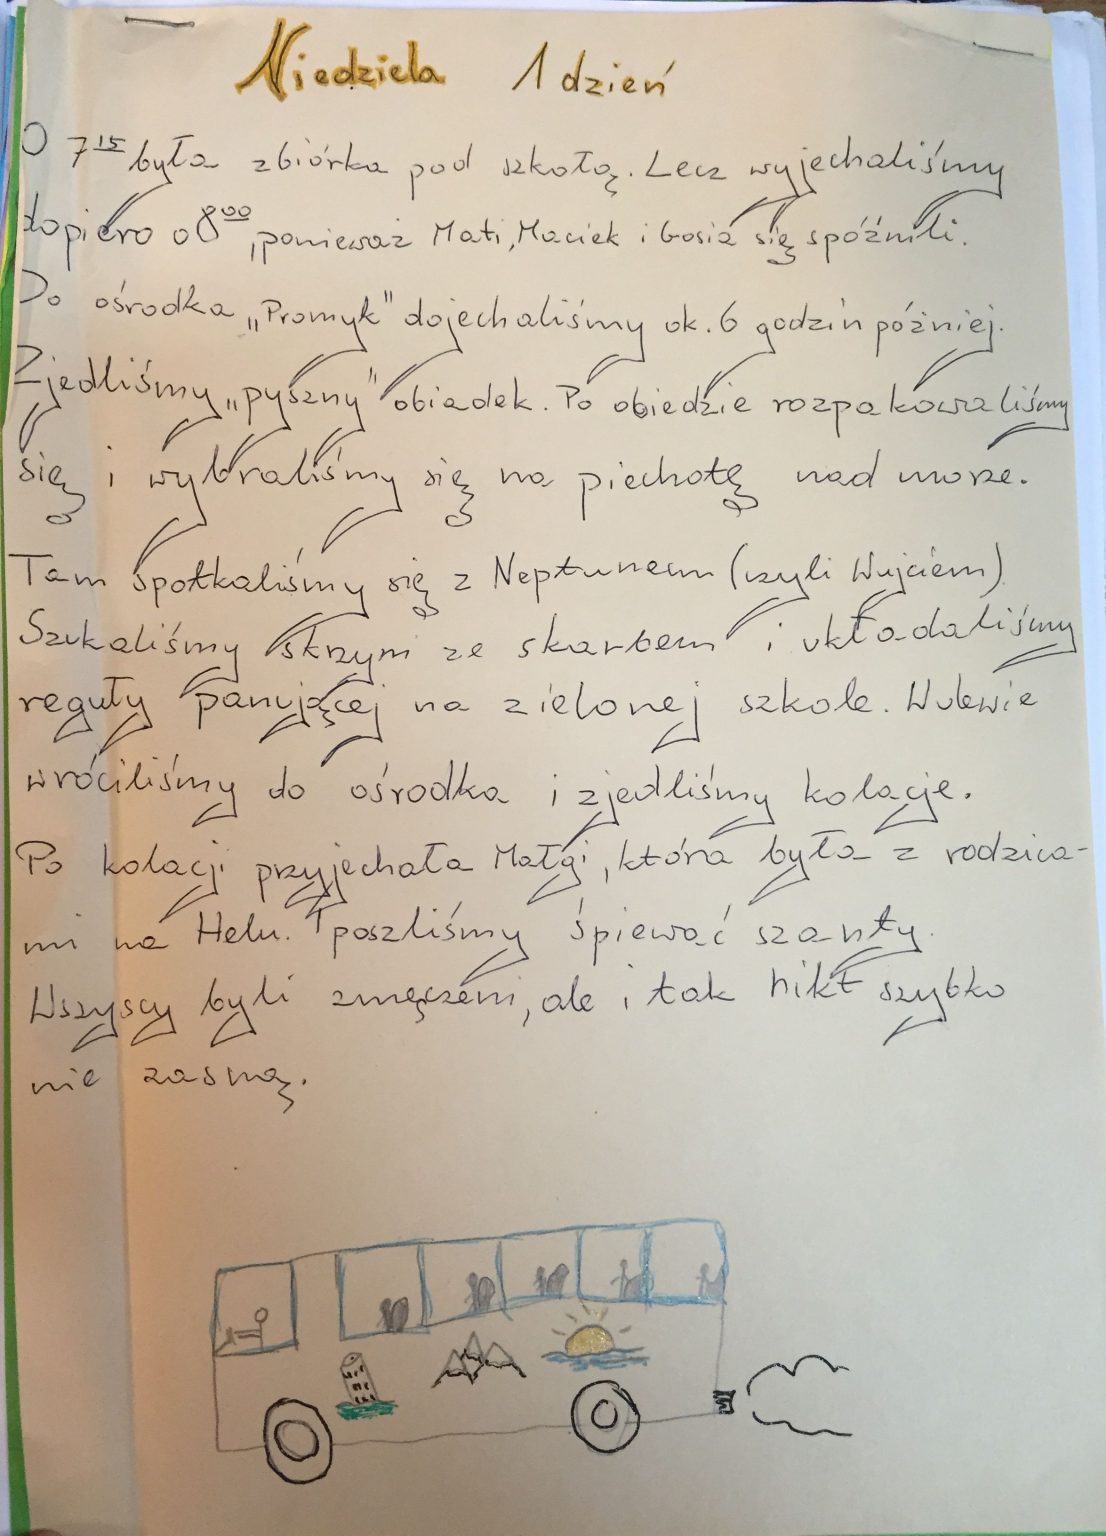 Niedziela 1 dzień
O 7¹⁵ była zbiórka pod szkołą. Lecz wyjechaliśmy
dopiero o 8⁰⁰, ponieważ Mati, Maciek i Gosia się spóźnili.
Do ośrodka „Promyk” dojechaliśmy ok. 6 godzin później.
Zjedliśmy „pyszny” obiadek. Po obiedzie rozpakowaliśmy
się i wybraliśmy się na piechotę nad morze.
Tam spotkaliśmy się z Neptunem (czyli Wujciem)
Szukaliśmy skrzyni ze skarbem i układaliśmy
reguły panującej na zielonej szkole. W ulewie
wróciliśmy do ośrodka i zjedliśmy kolację.
Po kolacji przyjechała Małgi, która była z rodzica-
mi na Helu. I poszliśmy śpiewać szanty.
Wszyscy byli zmęczeni, ale i tak nikt szybko
nie zasną.